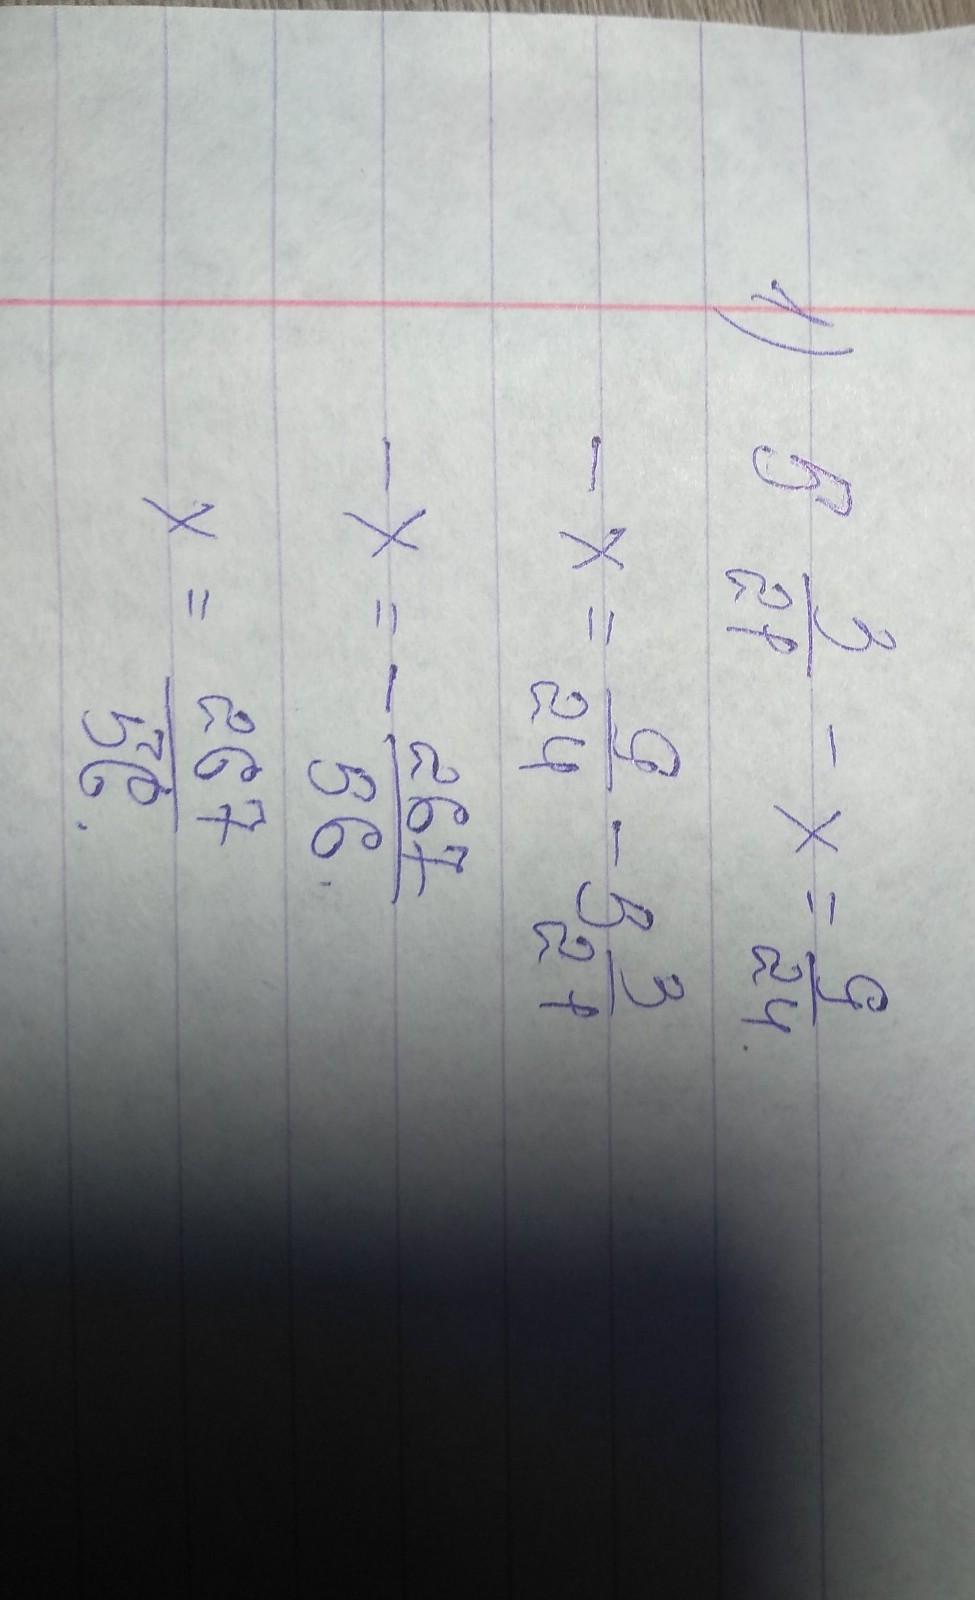 1) 5 3/21 - x = 9/24.
- x = 9/24 - 5 3/21
- x = - 267/56.
x = 267/56.